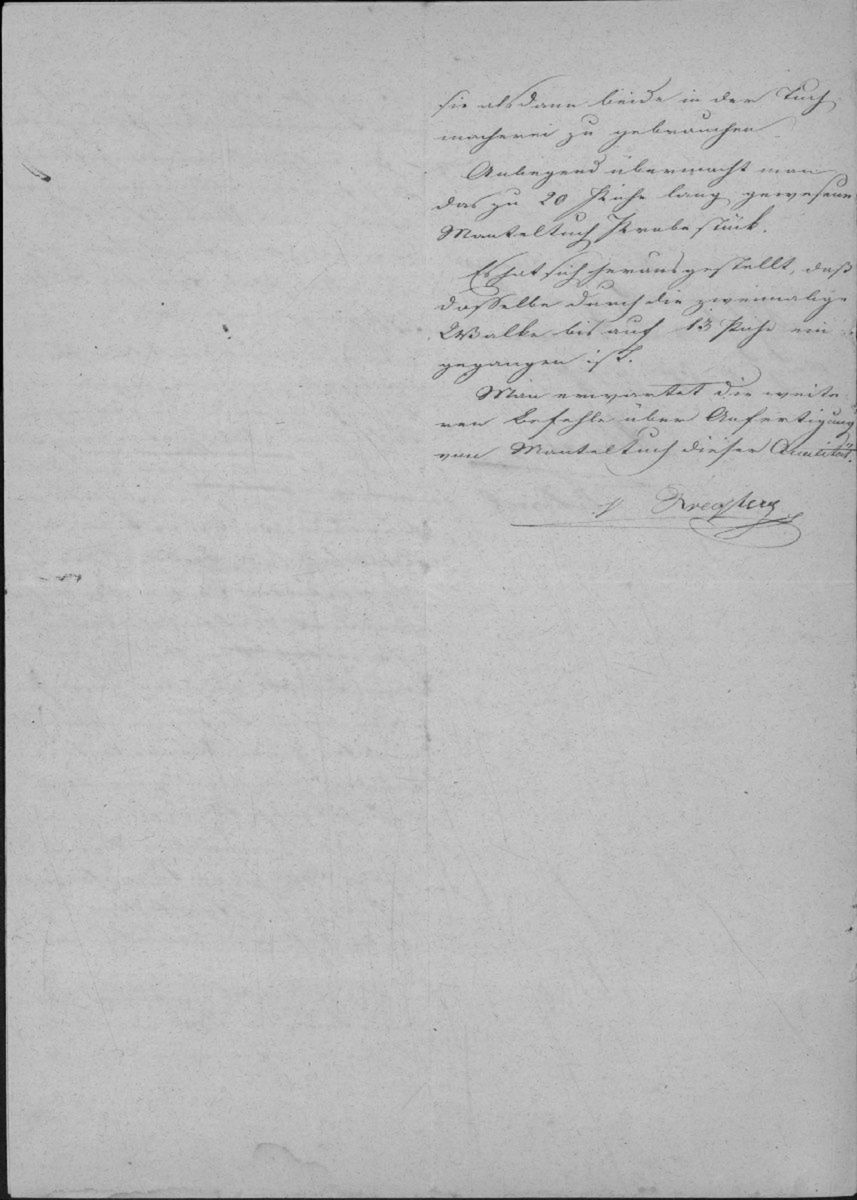 sie alsdann beide in der Tuch
macherei zu gebrauchen.
Anliegend übermacht man
das zu 20 lang gewesene
Manteltuch Probestück.
Es hat sich herausgestellt, daß
dasselbe durch die zweimalige
Walke bis auf 13 ein
gegangen ist.
Man erwartet die weite
ren Befehle über Anfertigung
von Manteltuch dieser Qualität.